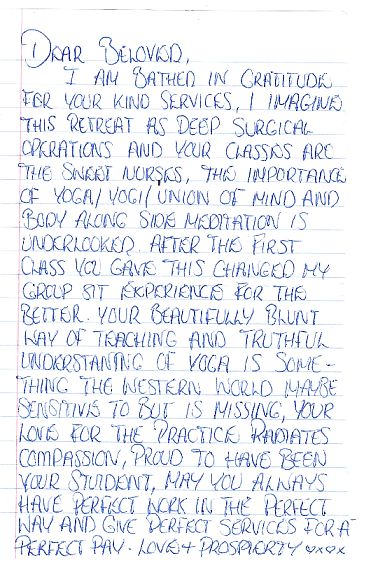 DEAR BELOVED,
I AM BATHED IN GRATITUDE
FOR YOUR KIND SERVICES, I IMAGINE
THIS RETREAT AS DEEP SURGICAL
OPERATIONS AND YOUR CLASSES ARE
THE SWEET NURSES, THE IMPORTANCE
OF YOGA/YOGI/UNION OF MIND AND
BODY ALONG SIDE MEDITATION IS
UNDERLOOKED. AFTER THE FIRST
CLASS YOU GAVE THIS CHANGED MY
GROUP SIT EXPERIENCE FOR THE
BETTER. YOUR BEAUTIFULLY BLUNT
WAY OF TEACHING AND TRUTHFUL
UNDERSTANTNG OF YOGA IS SOME-
THING THE WESTERN WORLD MAYBE
SENSITIVE TO BUT IS MISSING, YOUR
LOVE FOR THE PRACTICE RADIATES
COMPASSION, PROUD TO HAVE BEEN
YOUR STUTDENT, MAY YOU ALWAYS
HAVE PERFECT WORK IN THE PERFECT
WAY AND GIVE PERFECT SERVICES FOR A
PERFECT PAY. LOVE + PROSPIERTY ♡x♡x